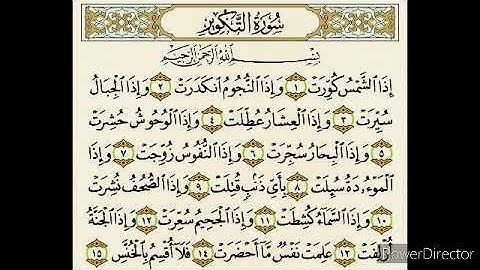 سُورَةُ التَّكْوِيرِ
بِسْمِ اللَّهِ الرَّحْمَٰنِ الرَّحِيمِ
إِذَا الشَّمْسُ كُوِّرَتْ ١ وَإِذَا النُّجُومُ انكَدَرَتْ ٢ وَإِذَا الْجِبَالُ
سُيِّرَتْ ٣ وَإِذَا الْعِشَارُ عُطِّلَتْ ٤ وَإِذَا الْوُحُوشُ حُشِرَتْ
٥ وَإِذَا الْبِحَارُ سُجِّرَتْ ٦ وَإِذَا النُّفُوسُ زُوِّجَتْ ٧ وَإِذَا
الْمَوْءُۥدَةُ سُئِلَتْ ٨ بِأَيِّ ذَنۢبٍ قُتِلَتْ ٩ وَإِذَا الصُّحُفُ نُشِرَتْ
١٠ وَإِذَا السَّمَاءُ كُشِطَتْ ١١ وَإِذَا الْجَحِيمُ سُعِّرَتْ ١٢ وَإِذَا الْجَنَّةُ
أُزْلِفَتْ ١٣ عَلِمَتْ نَفْسٌ مَّا أَحْضَرَتْ ١٤ فَلَا أُقْسِمُ بِالْخُنَّسِ ١٥
PowerDirector